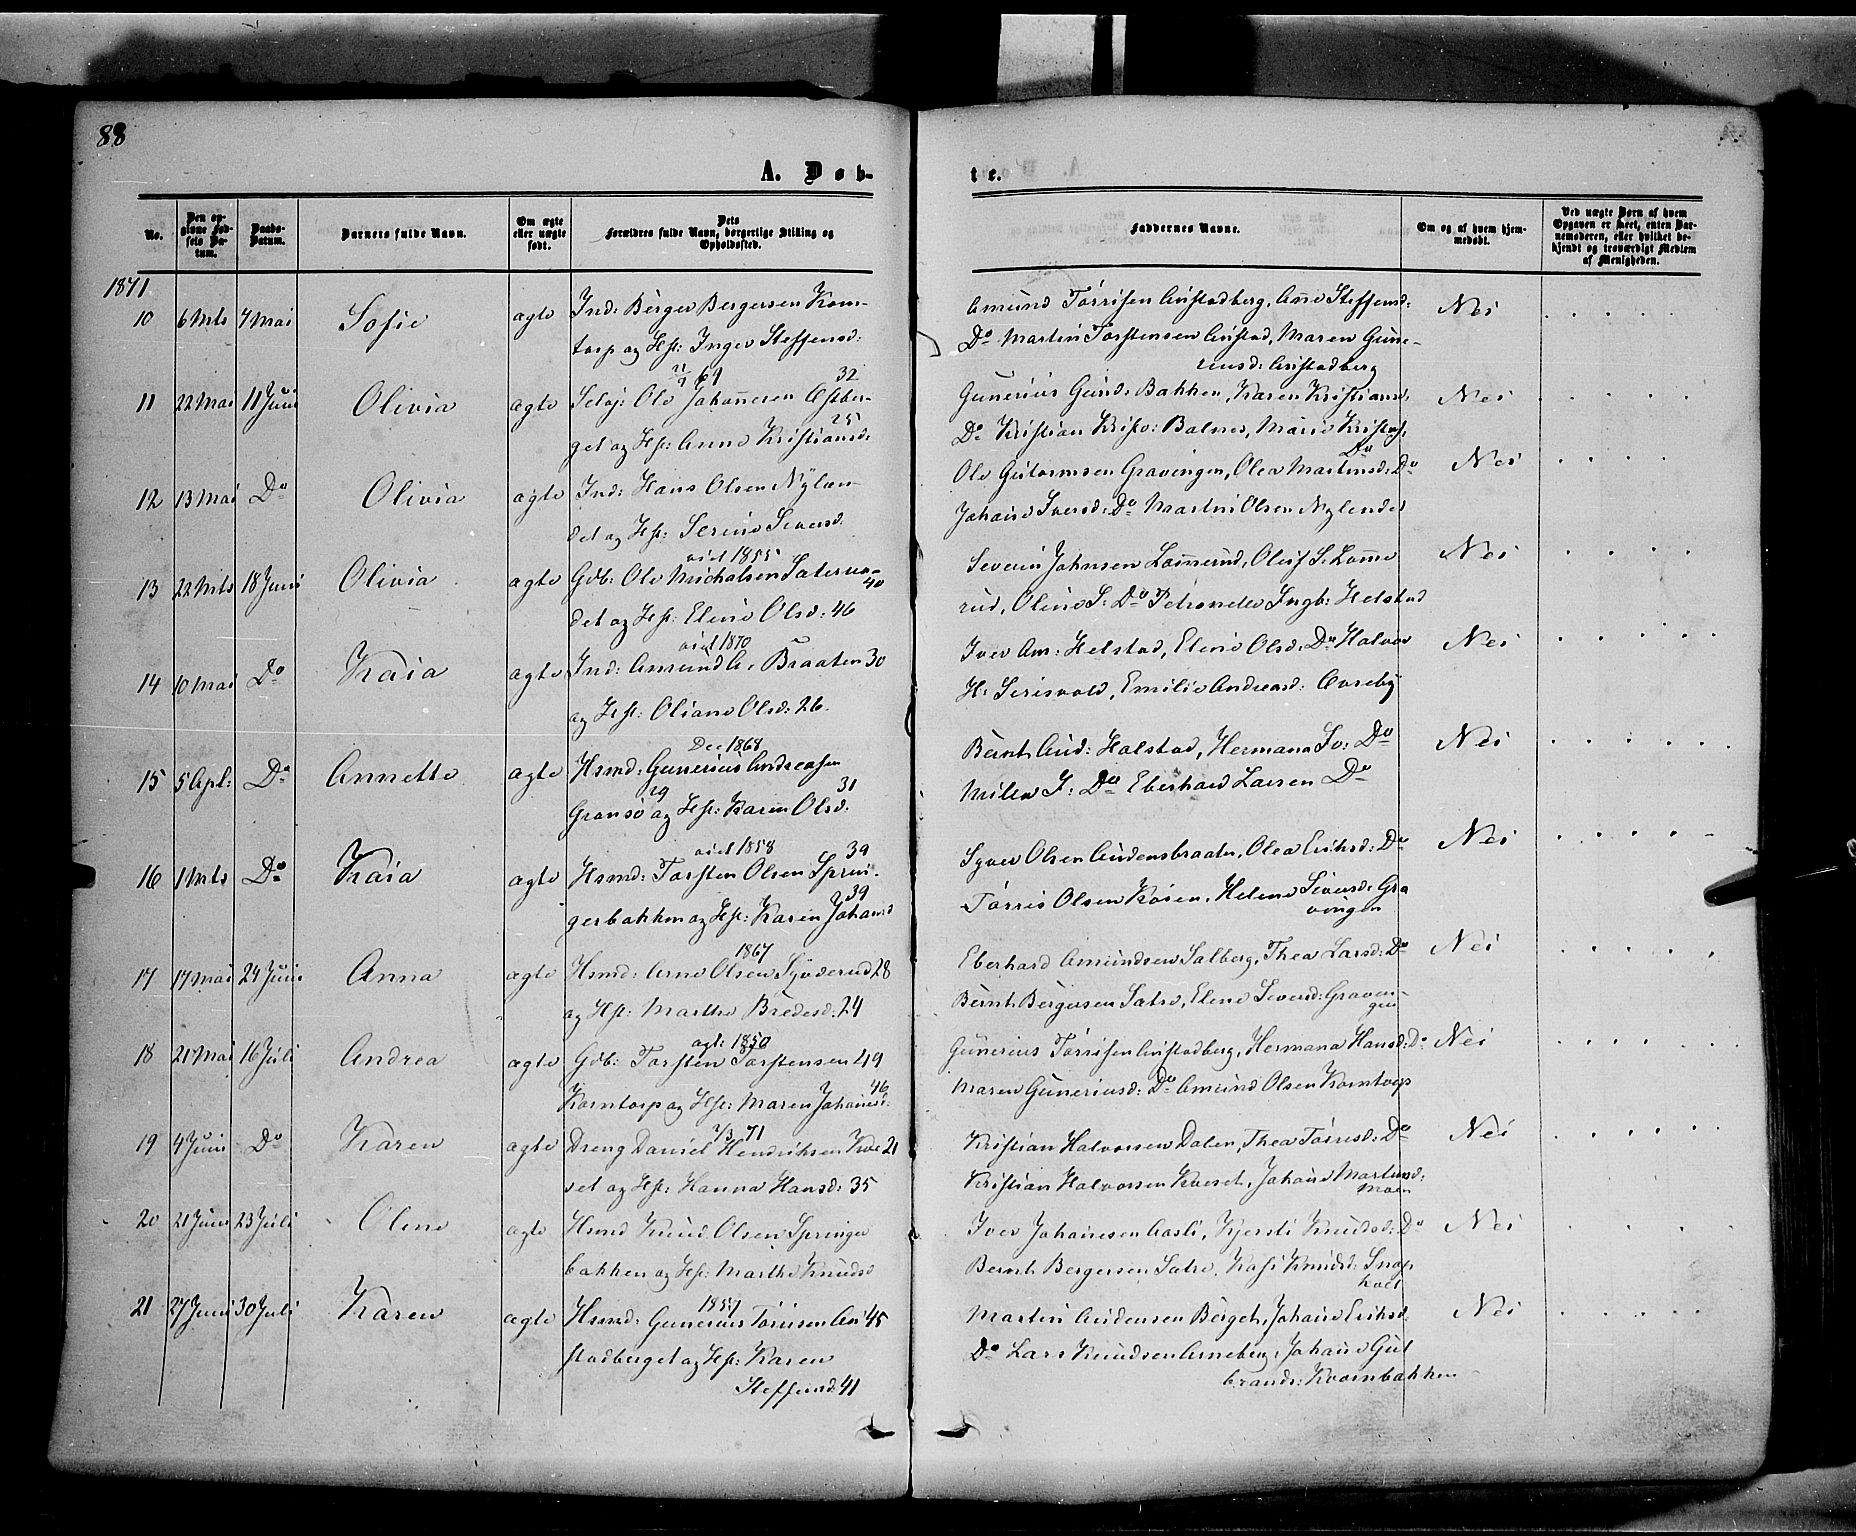 88
A. Døb-
te.
No.
Den op-
givne Fød-
sels Da-
tum.
Daabs-
Datum.
Barnets fulde Navn.
Om ægte
eller uægte
født.
Dets
Forældres fulde Navn, borgerlige Stilling og
Opholdssted.
Faddernes Navne.
Om og af hvem hjem-
medøbt.
Ved uægte Børn af hvem
Opgaven er skeet, enten Bar-
nemoderen, eller hvilket be-
kjendt og troværdigt Medlem
af Menigheden.
1871
10 6 Mts 7 Mai Sofie ægte Ind: Berger Bergersen Korn-
torp og Hst: Inger Steffensd:
Amund Tørrisen Austadberg, Anne Steffensd:
Do Martin Torstensen Austad, Maren Gune-
riusd: Austadberg
Nei
11 22 Mai 11 Juni Olivia ægte Selvej: Ole Johannesen Østber- 32
get og Hst: Anne Kristiansd. 25
Gunerius Gund: Bakken, Karen Kristiansd:
Do Kristian Kristo: Balnes, Marie Kristof.
Do
Nei
12 13 Mai Do Olivia ægte Ind: Hans Olsen Nylæn-
det og Hst: Serine Seversd.
Ole Guttormsen Gravingen, Olea Martinsd: Do
Johane Iversd: Do Martin Olsen Nylendet
Nei
13 22 Mts 18 Juni Olivia ægte viet 1855
Gdb: Ole Micholsen Sæterna- 40
det og Hst: Eline Olsd: 46
Severin Johnsen Lømerud, Oluf S. Lømme
rud, Oline S: Do Petronelle Ingb: Helstad
Nei
14 10 Mai Do Kaia ægte viet 1870
Ind: Amund A. Braaten 30
og Hst: Oliane Olsd: 26.
Iver Am: Helstad, Eline Olsd: Do Halvor
H: Serisvold, Emilie Andreasd: Øvreby
Nei
15 5 Apl: Do Annette ægte Dec 1868
Hsmd: Gunerius Andreasen
Gransø 29 og Hst: Karen Olsd. 31
Bernt Aud: Halstad, Hermana Sv: Do
Milla J: Do Eberhard Larsen Do
Nei
16 1 Mts Do Kaia ægte viet 1858 39
Hsmd: Torsten Olsen Sprin-
gerbakken og Hst: Karen Johansd 39
Syver Olsen Audensbraaten, Olea Eriksd: Do
Tørris Olsen Kosen, Helene Siversd: Gra
vingen
Nei
17 17 Mai 24 Juni Anna ægte 1867
Hsmd: Arne Olsen Syverud 28
og Hst: Marthe Bredesd: 24
Eberhard Amundsen Salberg, Thea Larsd: Do
Bernt Bergersen Sætre, Elene Seversd: Gravin-
gen
Nei
18 21 Mai 16 Juli Andrea ægte ægt: 1850
Gdb: Torsten Torstensen 49
Korntorp og Hst: Maren Johannesd. 46
Gunerius Tørrisen Austadberg, Hermana Hansd: Do
Maren Guneriusd: Do Amund Olsen Korntorp
Nei
19 4 Juni Do Karen ægte 2/3 71
Dreng Daniel Hendriksen Kve 21
set og Hst: Hanna Hansd: 35
Kristian Halvorsen Dalen, Thea Tørresd: Do
Kristian Halvorsen Kveset, Johane Martinsd:
Moen
Nei
20 21 Juni 23 Juli Oline ægte Hsmd Knud Olsen Springer
bakken og Hst: Marthe Knudsd
Iver Johannesen Aasli, Kjersti Knudsd: Do
Bernt Bergersen Sætre, Kari Knudsd:
Nei
21 27 Juni 30 Juli Karen ægte 1857
Hsmd: Gunerius Tørrisen Au 45
stadberget og Hst: Karen
Steffensd: 41
Martin Audensen Berget, Johane Eriksd.
Do Lars Knudsen Arneberg, Johane Gul
brands: Kvernbakken
Nei